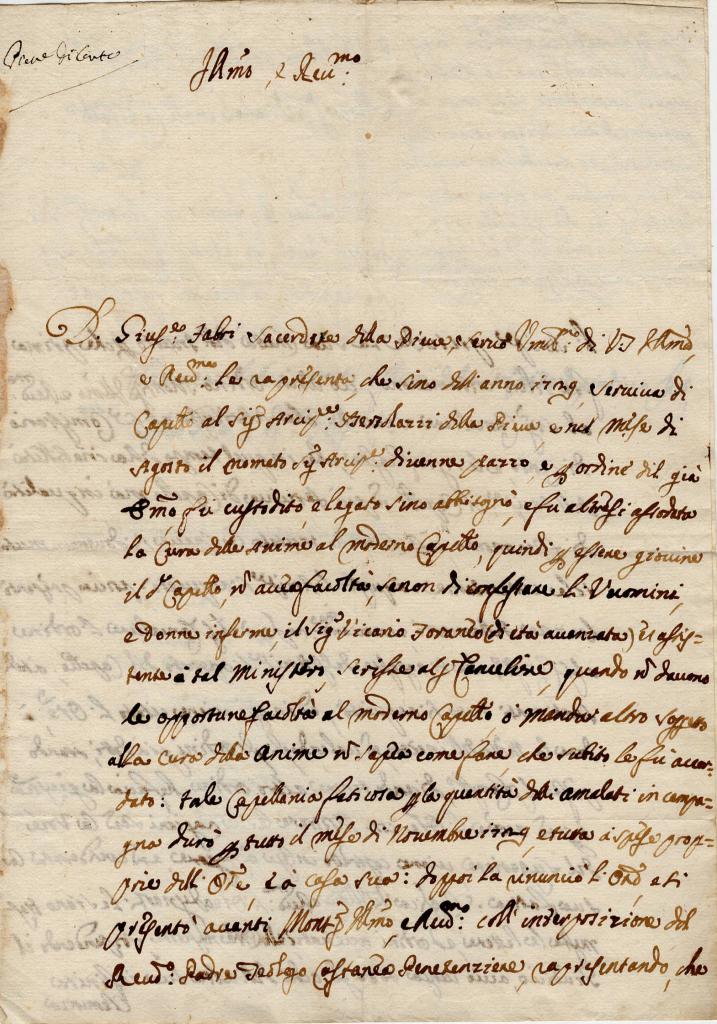 Pieve di Cento
Illmo, e Revmo:
D. Gius.e Fabri Sacerdote della Pieve, servo Umilmo: di VS Illma,
e Revma: le rapresenta, che sino dell'anno 1729, serviva di
Capello al Sig Arcipe: Bertolazzi della Pieve, e nel mese di
Agosto il nomato Sig Arcipe: divenne pazzo, e p ordine del già
Emo fù custodito, e legato sino abbisognò, e fù altresì
la Cura delle anime al moderno Capello, quindi p essere giovine
il do Capello, non facoltà, se non di confessare li Uuomini,
e donne inferme, il Sig Vicario Foraneo (di età avanzata)
tente à tal Ministero, scrisse al Canceliere, quando non davono
le opportune facoltà al moderno Capello ò mandar altro sogetto
alla Cura della Anime non sapea come fare, che subito le fù accor-
dato: tale Capellania faticosa p la quantità delli amalati in campa-
gna durò p tutto il mese di Novembre 1729, e tuta à spese prop-
prie dell' Ore, e à casa sua: doppoi la rinunciò l' Ore, e si
presentò avanti Illmo, e Revmo: coll' interposizione del
Revdo: Padre Teologo Costanzo Penetenziere, rapresentando, che